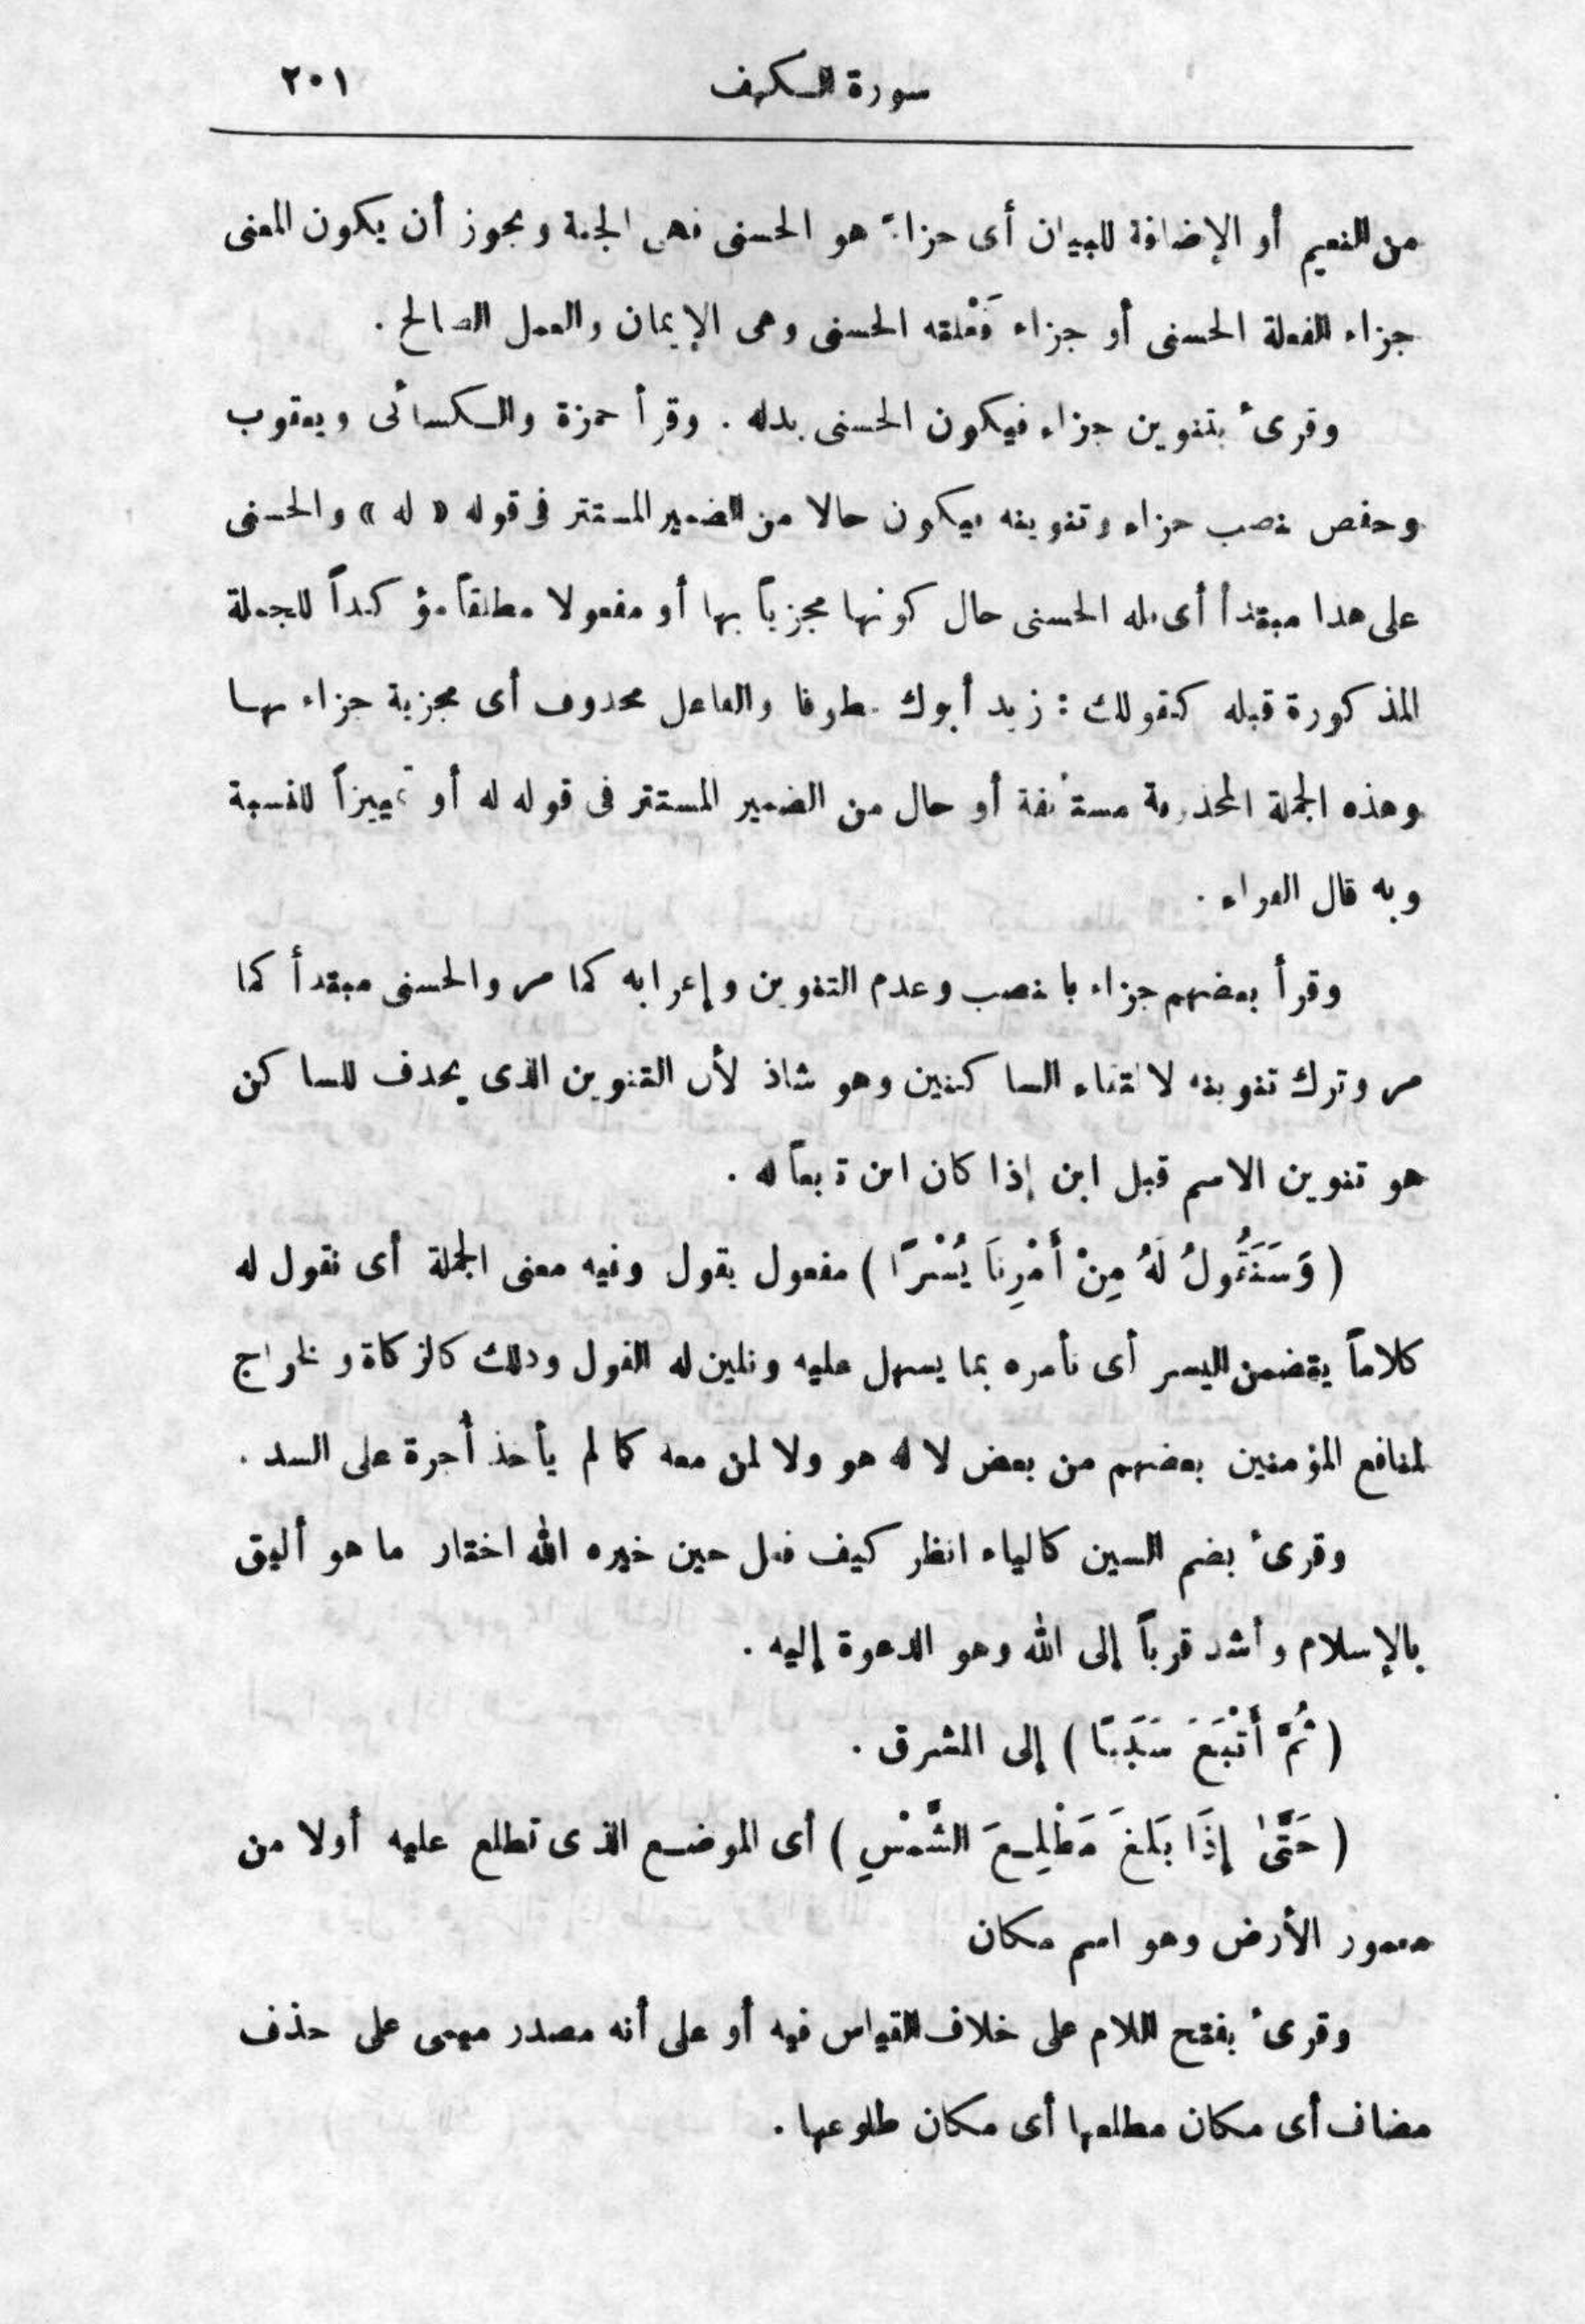 سورة الكهف ٢٠١
من النعيم أو الإضافة للبيان أى جزاء هو الحسنى فهى الجنة ويجوز أن يكون المعنى
جزاء الفعلة الحسنى أو جزاء فَعْلته الحسنى وهى الإيمان والعمل الصالح .
وقرىء بتنوين جزاء فيكون الحسنى بدله . وقرأ حمزة والكسائى ويعقوب
وحفص نصب جزاء وتنوينه فيكون حالا من الضمير المستتر فى قوله « له » والحسنى
على هذا مبتدأ أى فله الحسنى حال كونها مجزياً بها أو مفعولا مطلقاً مؤكداً للجملة
المذكورة قبله كقولك : زيد أبوك عطوفا والعامل محذوف أى مجزية جزاء بها
وهذه الجملة المحذوفة مستأنفة أو حال من الضمير المستتر فى قوله له أو تمييزاً للنسبة
وبه قال الفراء .
وقرأ بعضهم جزاء بالنصب وعدم التنوين وإعرابه كما مر والحسنى مبتدأ كما
مر وترك تنوينه لالتقاء الساكنين وهو شاذ لأن التنوين الذى يحذف للساكن
هو تنوين الاسم قبل ابن إذا كان ابن تابعاً له .
( وَسَنَقُولُ لَهُ مِنْ أَمْرِنَا يُسْرًا ) مفعول يقول وفيه معنى الجملة أى نقول له
كلاماً يتضمن اليسر أى نأمره بما يسهل عليه ونلين له القول وذلك كالزكاة والخراج
لمنافع المؤمنين بعضهم من بعض لا له هو ولا لمن معه كما لم يأخذ أجرة على السد .
وقرىء بضم السين كالياء انظر كيف فعل حين خيره الله اختار ما هو أليق
بالإسلام وأشد قرباً إلى الله وهو الدعوة إليه .
( ثُمَّ أَتْبَعَ سَبَبًا ) إلى المشرق .
( حَتَّىٰ إِذَا بَلَغَ مَطْلِعَ الشَّمْسِ ) أى الموضع الذى تطلع عليه أولا من
معمور الأرض وهو اسم مكان
وقرىء بفتح اللام على خلاف القياس فيه أو على أنه مصدر ميمى على حذف
مضاف أى مكان مطلعها أى مكان طلوعها .